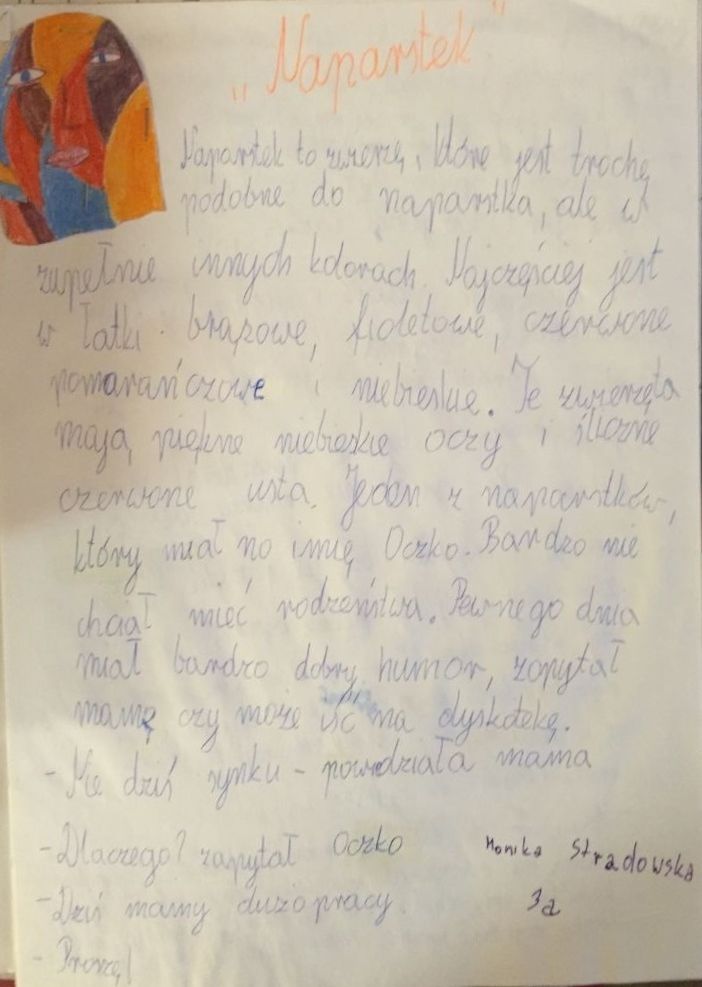 „Naparstek"
Naparstek to zwierzę, które jest trochę
podobne do naparstka, ale w
zupełnie innych kolorach. Najczęściej jest
w łatki brązowe, fioletowe, czerwone
pomarańczowe i niebieskie. Te zwierzęta
mają piękne niebieskie oczy i śliczne
czerwone usta. Jeden z naparstków,
który miał no imię Oczko. Bardzo nie
chciał mieć rodzeństwa. Pewnego dnia
miał bardzo dobry humor, zapytał
mamę czy może iść na dyskotekę.
- Nie dziś synku - powiedziała mama
- Dlaczego? zapytał Oczko
- Dziś mamy dużo pracy.
- Proszę!
Monika Stradowska
3a